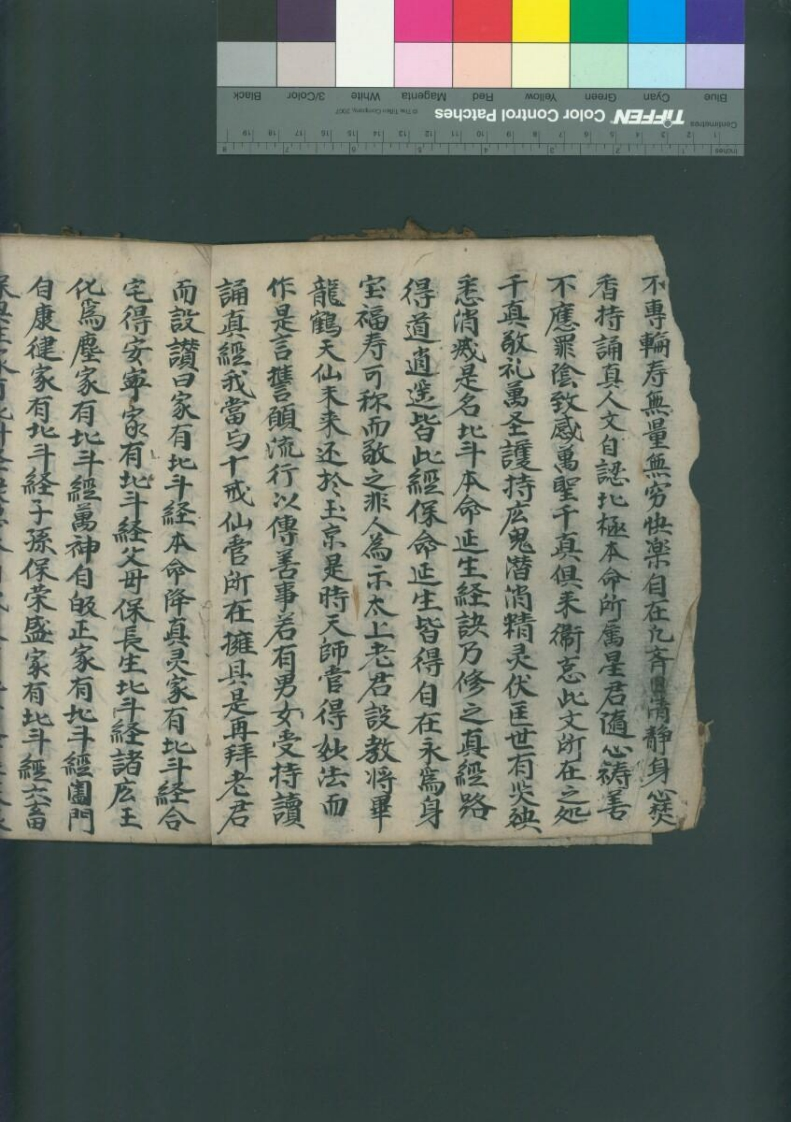 不專輪寿無量無穷快楽自在凢斉清静身心焚
香持誦真人文自認北極本命所属星君隨心祷善
不應罪陰致感萬聖千真俱来衛忘此文所在之处
千真敬礼萬圣護持庅鬼潜消精灵伏匡世有灾殃
悉消灭是名北斗本命延生経訣乃修之真經路
得道逍遥皆此經保命延生皆得自在永爲身
宝福寿可称而敬之非人為示太上老君設教将畢
龍鶴天仙未来还於玉京是時天師得妙法而
作是言誓願流行以傳善事若有男女受持讀
誦真經我當与十戒仙官所在擁具是再拜老君
而設讃曰家有北斗経本命降真灵家有北斗経合
宅得安寧家有北斗経父母保長生北斗經諸庅王
化爲塵家有北斗經萬神自皈正家有北斗經闔門
自康徤家有北斗経子孫保荣盛家有北斗經六畜
Blue Cyan Green Yellow Red Magenta White 3/Color Black
TIFFEN Color Control Patches © The Tiffen Company, 2007
Centimetres 1 2 3 4 5 6 7 8 9 10 11 12 13 14 15 16 17 18 19
Inches 1 2 3 4 5 6 7 8